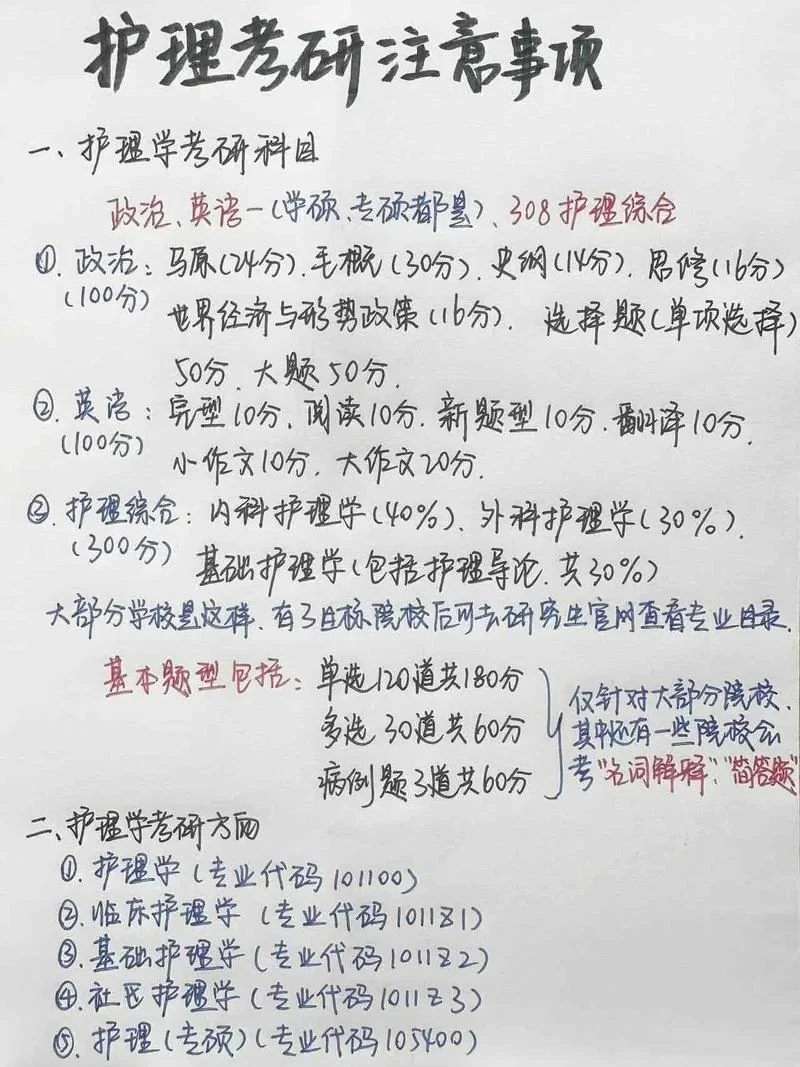 护理考研注意事项
一、护理学考研科目
政治、英语一(学硕、专硕都是)、308护理综合
①. 政治：马原(24分).毛概(30分).史纲(14分).思修(16分)
(100分) 世界经济与形势政策(16分). 选择题(单项选择)
50分.大题50分.
②. 英语：完型10分.阅读10分.新题型10分.翻译10分.
(100分) 小作文10分.大作文20分.
③. 护理综合：内科护理学(40%)、外科护理学(30%).
(300分) 基础护理学(包括护理导论.共30%)
大部分学校是这样.有了目标院校后可去研究生官网查看专业目录.
基本题型包括：单选120道共180分
多选 30道共60分
病例题3道共60分
仅针对大部分院校.
其中还有一些院校会
考"名词解释"."简答题"
二、护理学考研方向
①. 护理学(专业代码101100)
②. 临床护理学(专业代码1011Z1)
③. 基础护理学(专业代码1011Z2)
④. 社区护理学(专业代码1011Z3)
⑤. 护理(专硕)(专业代码105400)